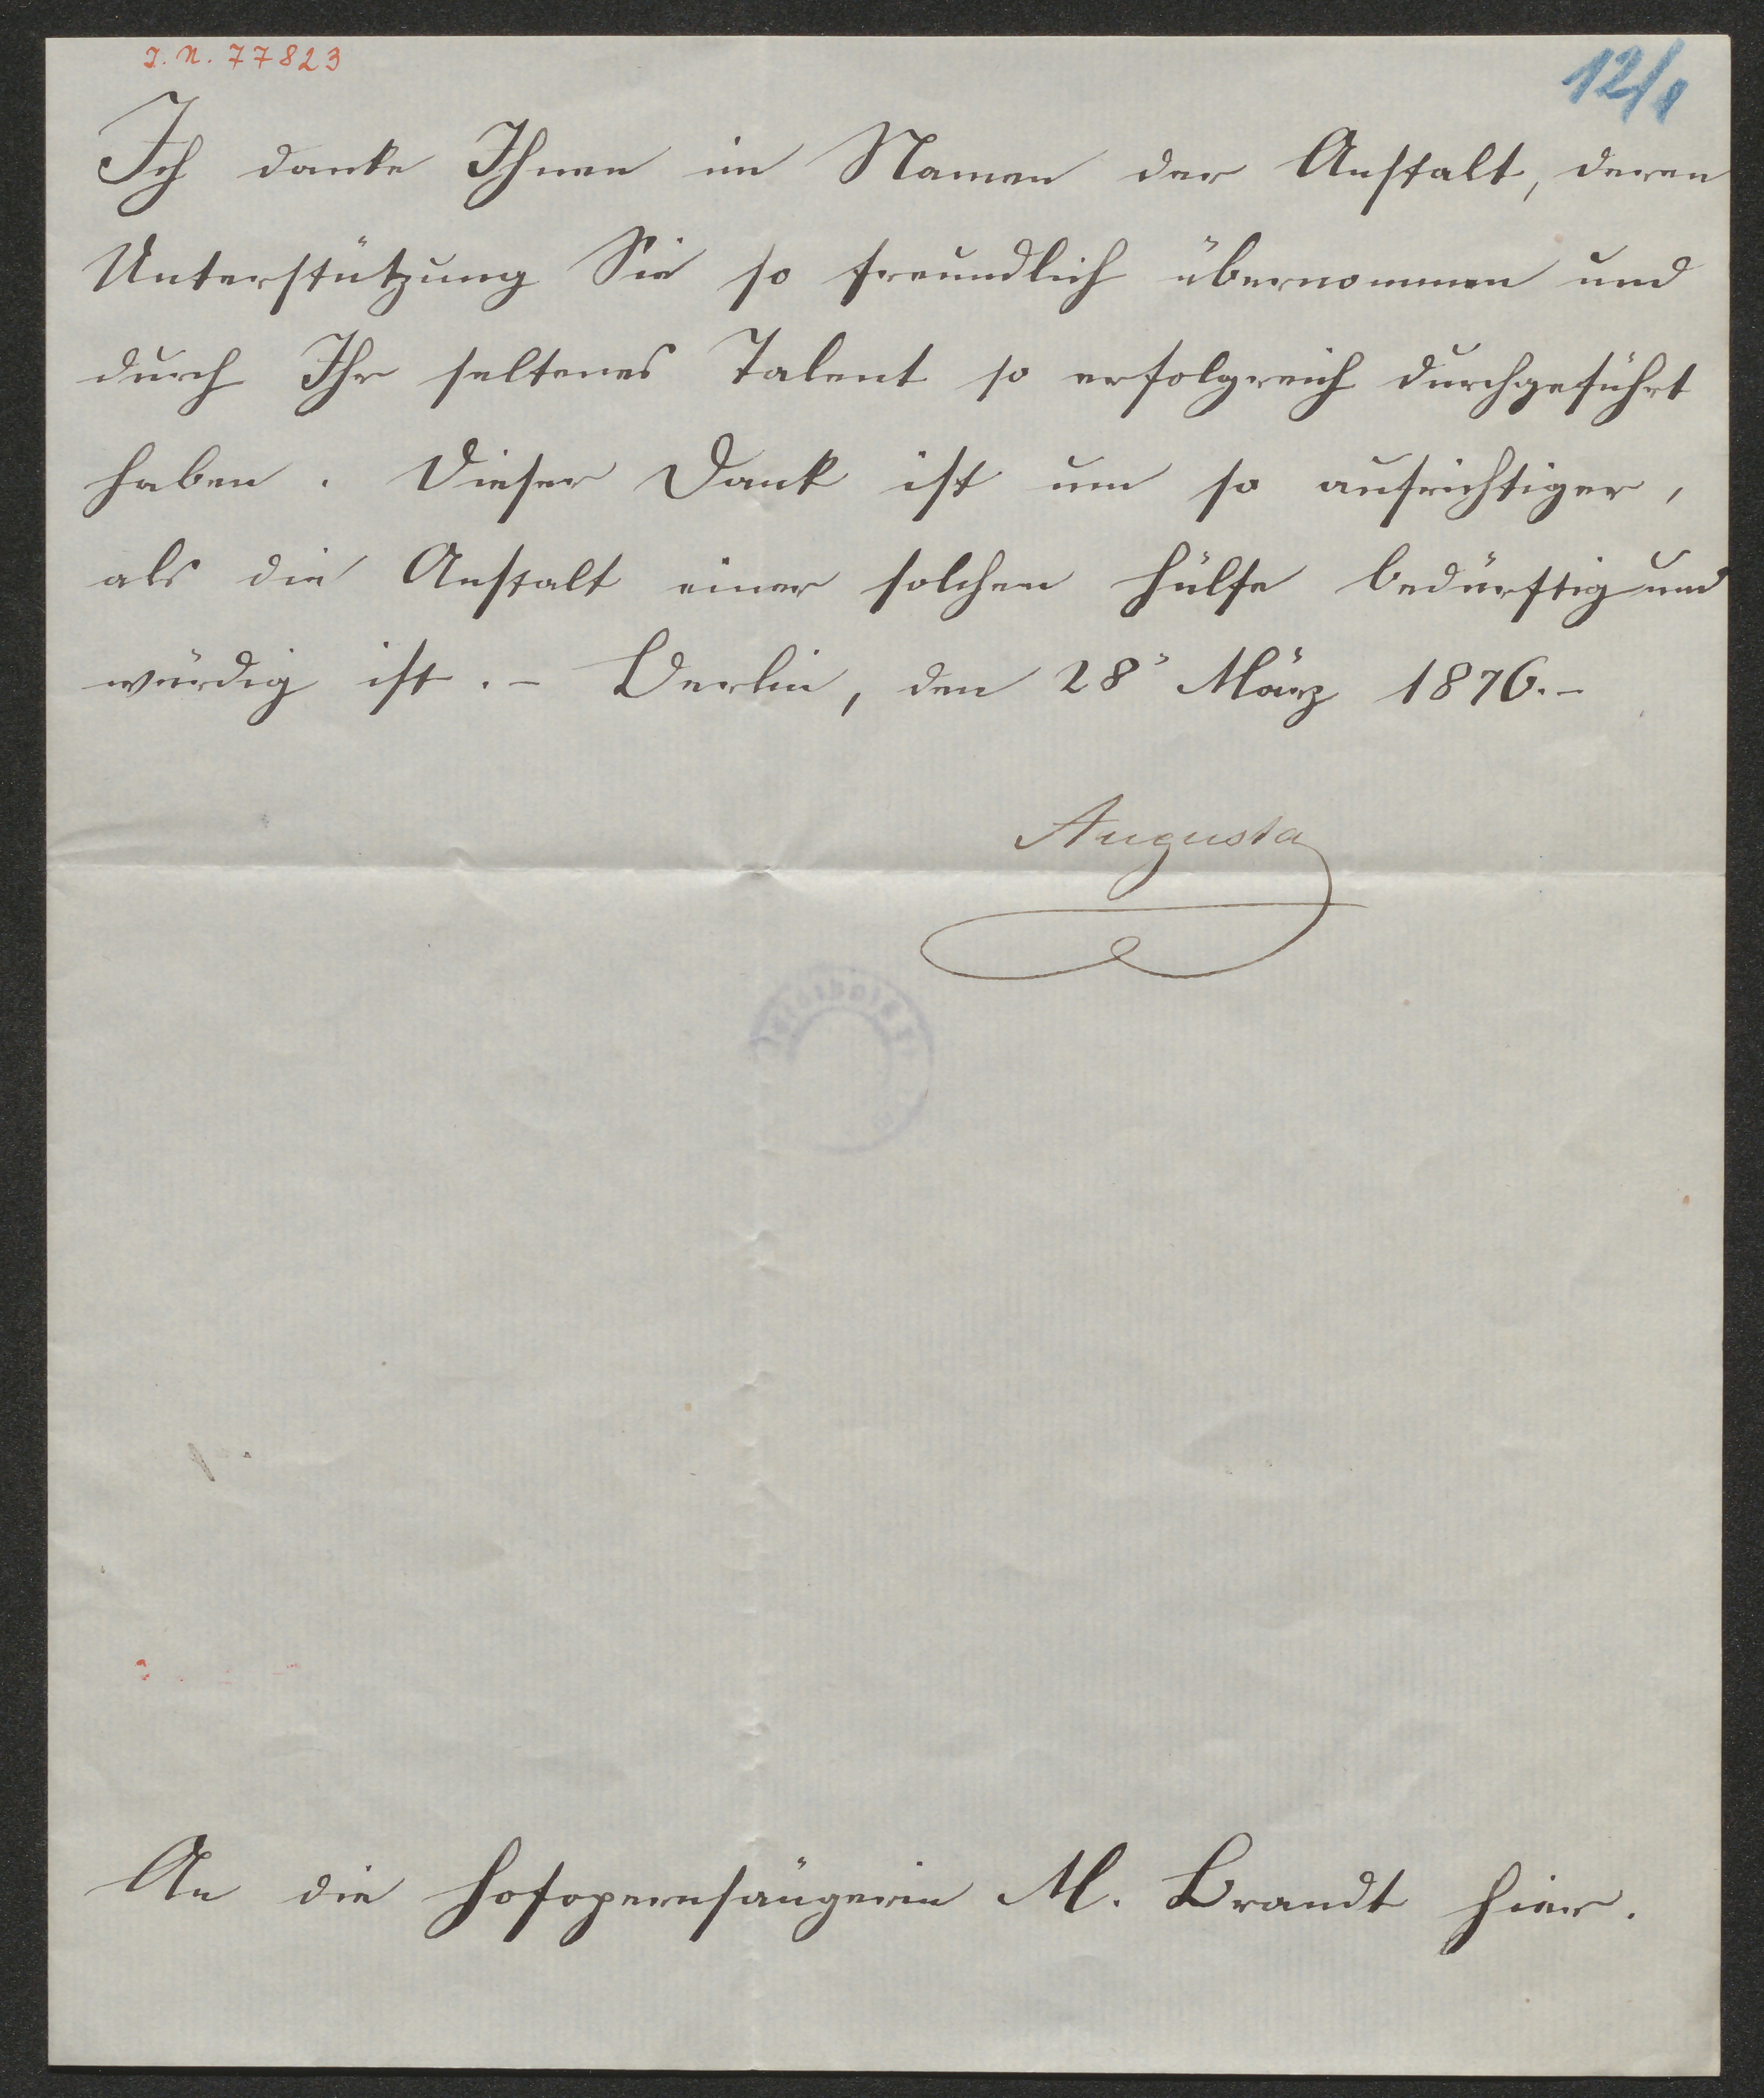 J. N. 77823
12/1
Ich danke Ihnen im Namen der Anstalt, deren
Unterstützung Sie so freundlich übernommen und
durch Ihr seltenes Talent so erfolgreich durchgeführt
haben. Dieser Dank ist um so aufrichtiger,
als die Anstalt einer solchen Hülfe bedürftig und
würdig ist. – Berlin, den 28" März 1876. –
Augusta
An die Hofopernsängerin M. Brandt hier.